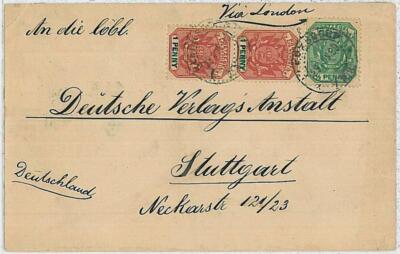 Via London
An die löbl.
1 PENNY
1 PENNY
½ PENNY
Deutsche Verlag's Anstalt
Stuttgart
Deutschland
Neckarstr 121/23